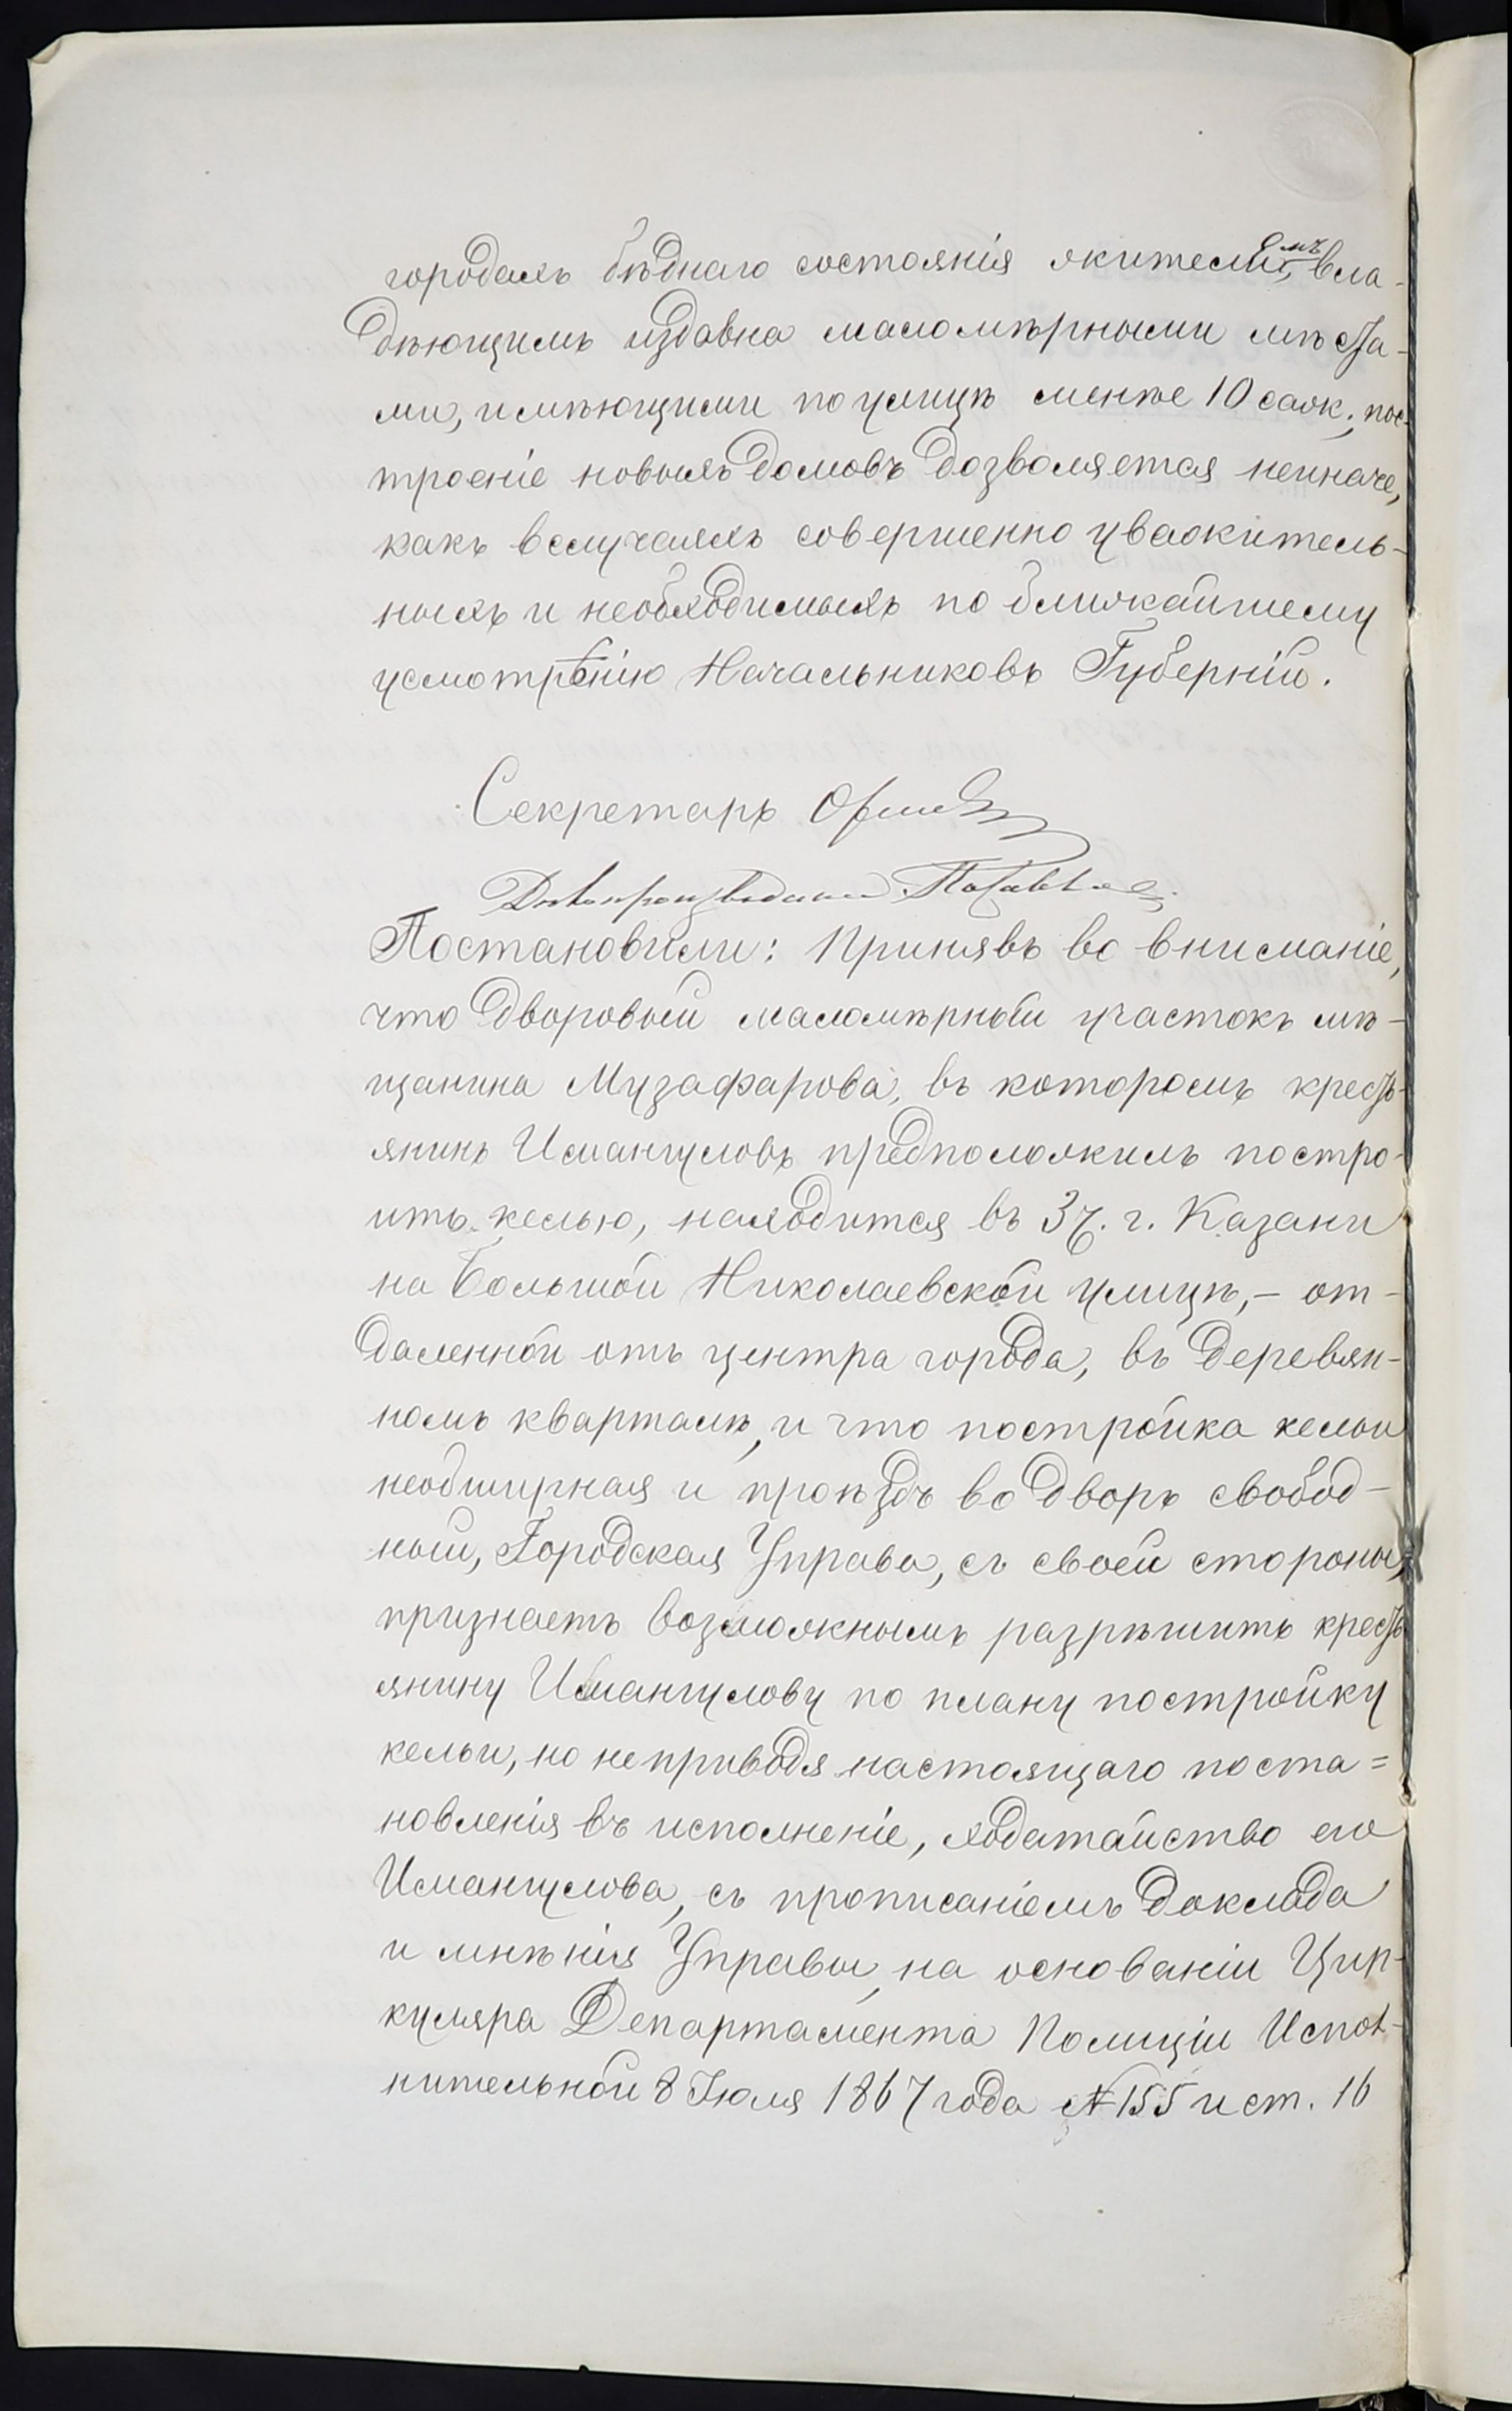 городахъ бѣднаго состоянія жителямъ, вла-
дѣющимъ издавна маломѣрными мѣста-
ми, имѣющими по улицѣ менѣе 10 саж., пос-
троеніе новыхъ домовъ дозволяется неиначе,
какъ вслучаяхъ совершенно уважитель-
ныхъ и необходимыхъ по ближайшему
усмотрѣнію Начальниковъ Губерній.
Секретарь
Дѣлопроизводитель
Постановили: Принявъ во вниманіе,
что дворовый маломѣрный участокъ мѣ-
щанина Музафарова, въ которомъ кресть-
янинъ Имангуловъ предположилъ постро-
ить келью, находится въ 3 ч. г. Казани
на Большой Николаевской улицѣ, - от-
даленной отъ центра города, въ деревян-
номъ кварталѣ, и что постройка кельи
необширная и проѣздъ во дворъ свобод-
ный, Городская Управа, съ своей стороны,
признаетъ возможнымъ разрѣшить кресть
янину Имангулову по плану постройку
кельи, но неприводя настоящаго поста=
новленія въ исполненіе, ходатайство его
Имангулова, съ прописаніемъ доклада
и мнѣнія Управы, на основаніи Цир-
куляра Департамента Полиціи Испол-
нительной 8 Іюля 1867 года № 155 и ст. 16